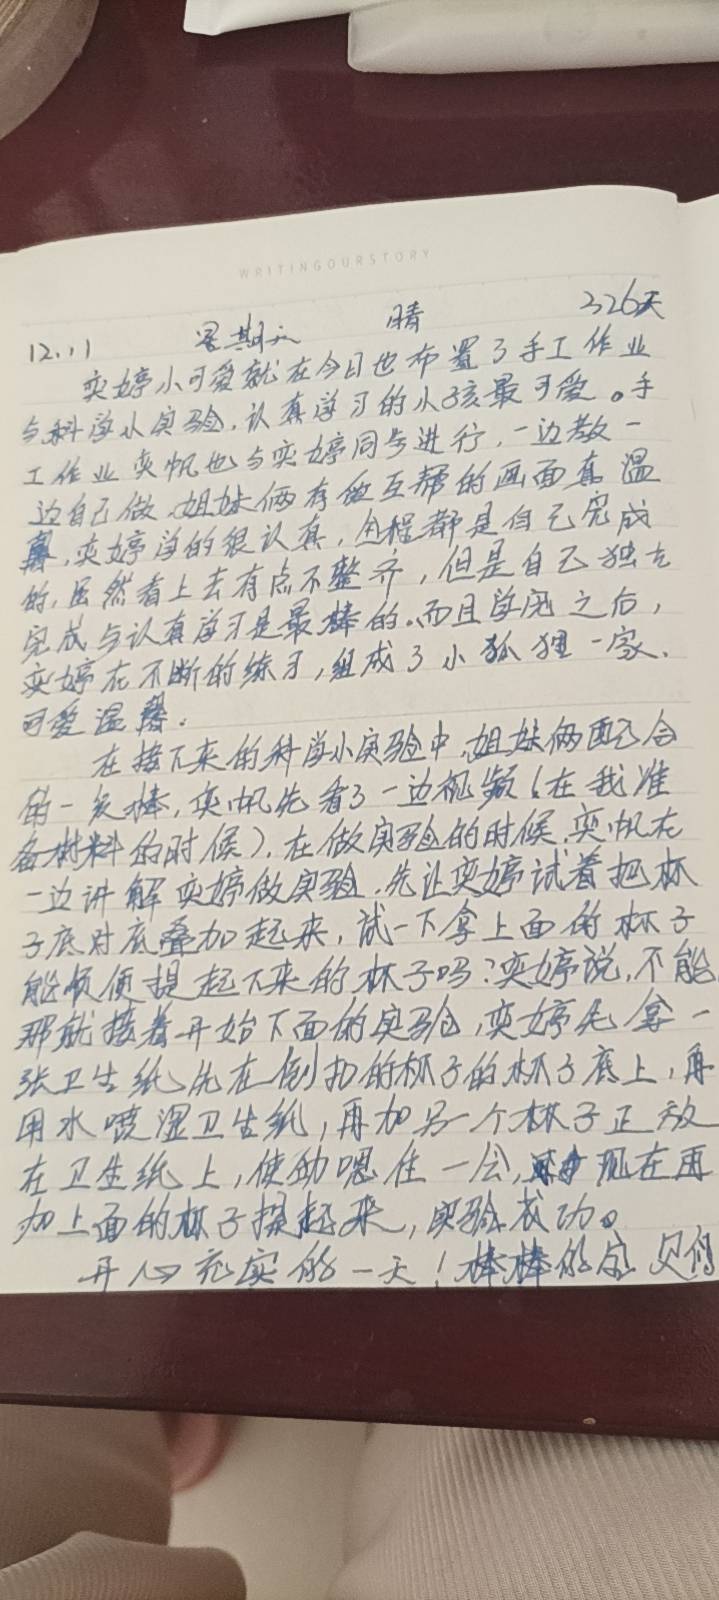 WRITINGOURSTORY
12.11 星期天 晴 326天
奕婷小可爱就在今日也布置了手工作业
与科学小实验,认真学习的小孩最可爱。手
工作业奕帆也与奕婷同步进行,一边教一
边自己做,姐妹俩有互帮的画面真温
,奕婷学的很认真,全程都是自己完成
的,虽然看上去有点不整齐,但是自己独立
完成与认真学习是最棒的。而且学完之后,
奕婷在不断的练习,组成了小狐狸一家,
可爱温馨。
在接下来的科学小实验中,姐妹俩配合
的一级棒,奕帆先看了一边视频(在我准
备材料的时候),在做实验的时候,奕帆在
一边讲解奕婷做实验,先让奕婷试着把杯
子底对底叠加起来,试一下拿上面的杯子
能顺便提起下来的杯子吗?奕婷说,不能,
那就接着开始下面的实验,奕婷先拿一
张卫生纸先在倒扣的杯子的杯子底上,再
用水喷湿卫生纸,再加另一个杯子正放
在卫生纸上,使劲嗯住一会,现在再
加上面的杯子提起来,实验成功。
开心充实的一天!棒棒的宝贝们